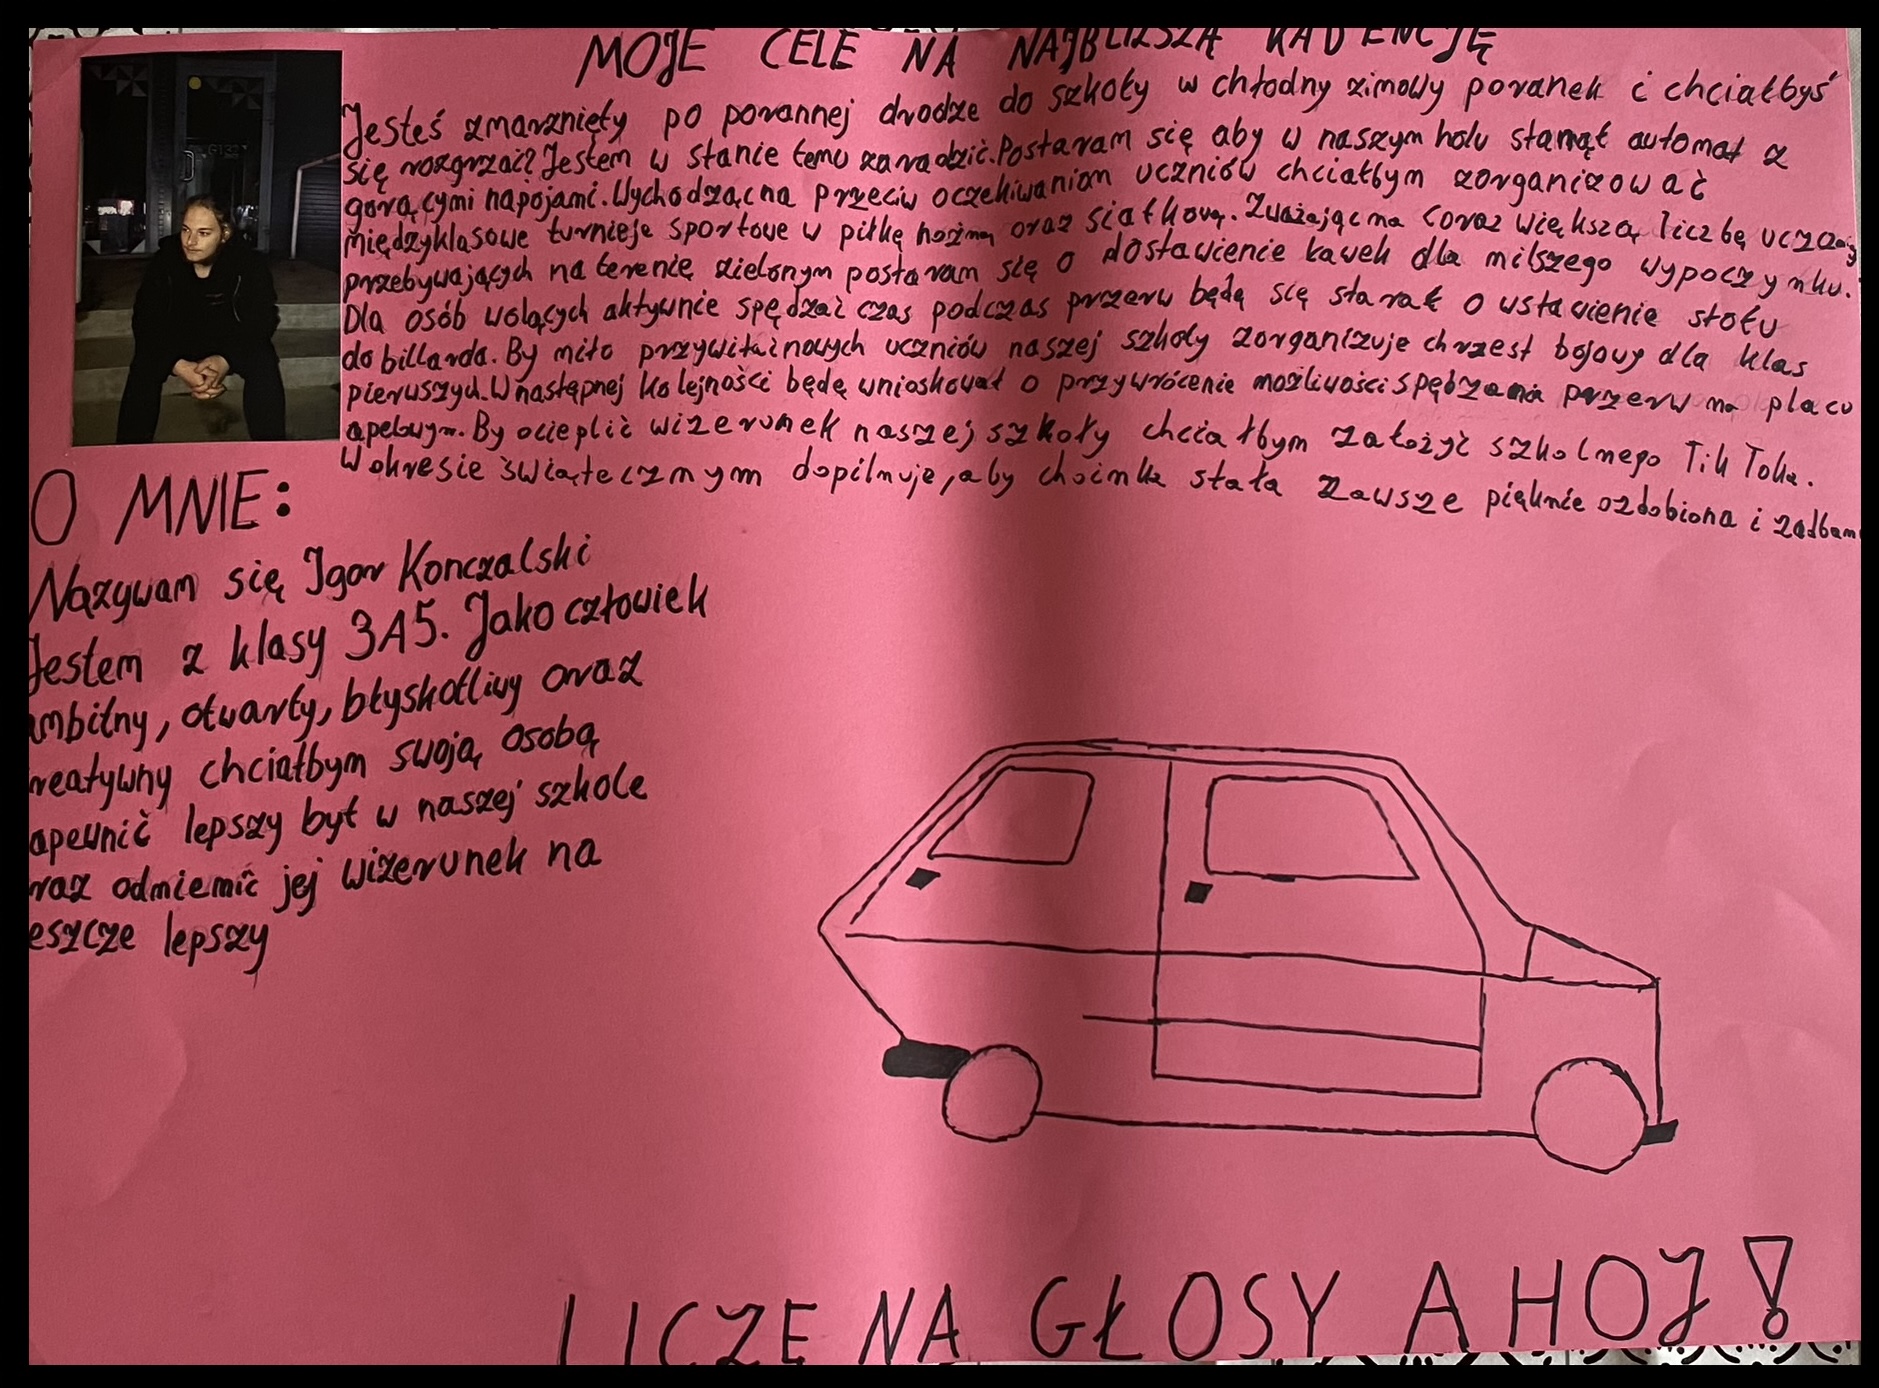 MOJE CELE NA NAJBLIŻSZĄ KADENCJĘ
Jesteś zmarznięty po porannej drodze do szkoły w chłodny zimowy poranek i chciałbyś
się rozgrzać? Jestem w stanie temu zaradzić. Postaram się aby w naszym holu stanął automat z
gorącymi napojami. Wychodząc na przeciw oczekiwaniom uczniów chciałbym zorganizować
międzyklasowe turnieje sportowe w piłkę nożną oraz siatkową. Zważając na coraz większą liczbę uczniów
przebywających na terenie zielonym postaram się o dostawienie ławek dla milszego wypoczynku.
Dla osób wolących aktywnie spędzać czas podczas przerw będę się starał o wstawienie stołu
do billarda. By miło przywitać nowych uczniów naszej szkoły zorganizuje chrzest bojowy dla klas
pierwszych. W następnej kolejności będę wnioskował o przywrócenie możliwości spędzania przerw na placu
apelowym. By ocieplić wizerunek naszej szkoły chciałbym założyć szkolnego Tik Toka.
W okresie świątecznym dopilnuje, aby choinka stała zawsze pięknie ozdobiona i zadban
O MNIE:
Nazywam się Igor Konczalski
Jestem z klasy 3A5. Jako człowiek
ambitny, otwarty, błyskotliwy oraz
reatywny chciałbym swoją osobą
apewnić lepszy byt w naszej szkole
raz odmienić jej wizerunek na
eszcze lepszy
LICZĘ NA GŁOSY AHOJ!